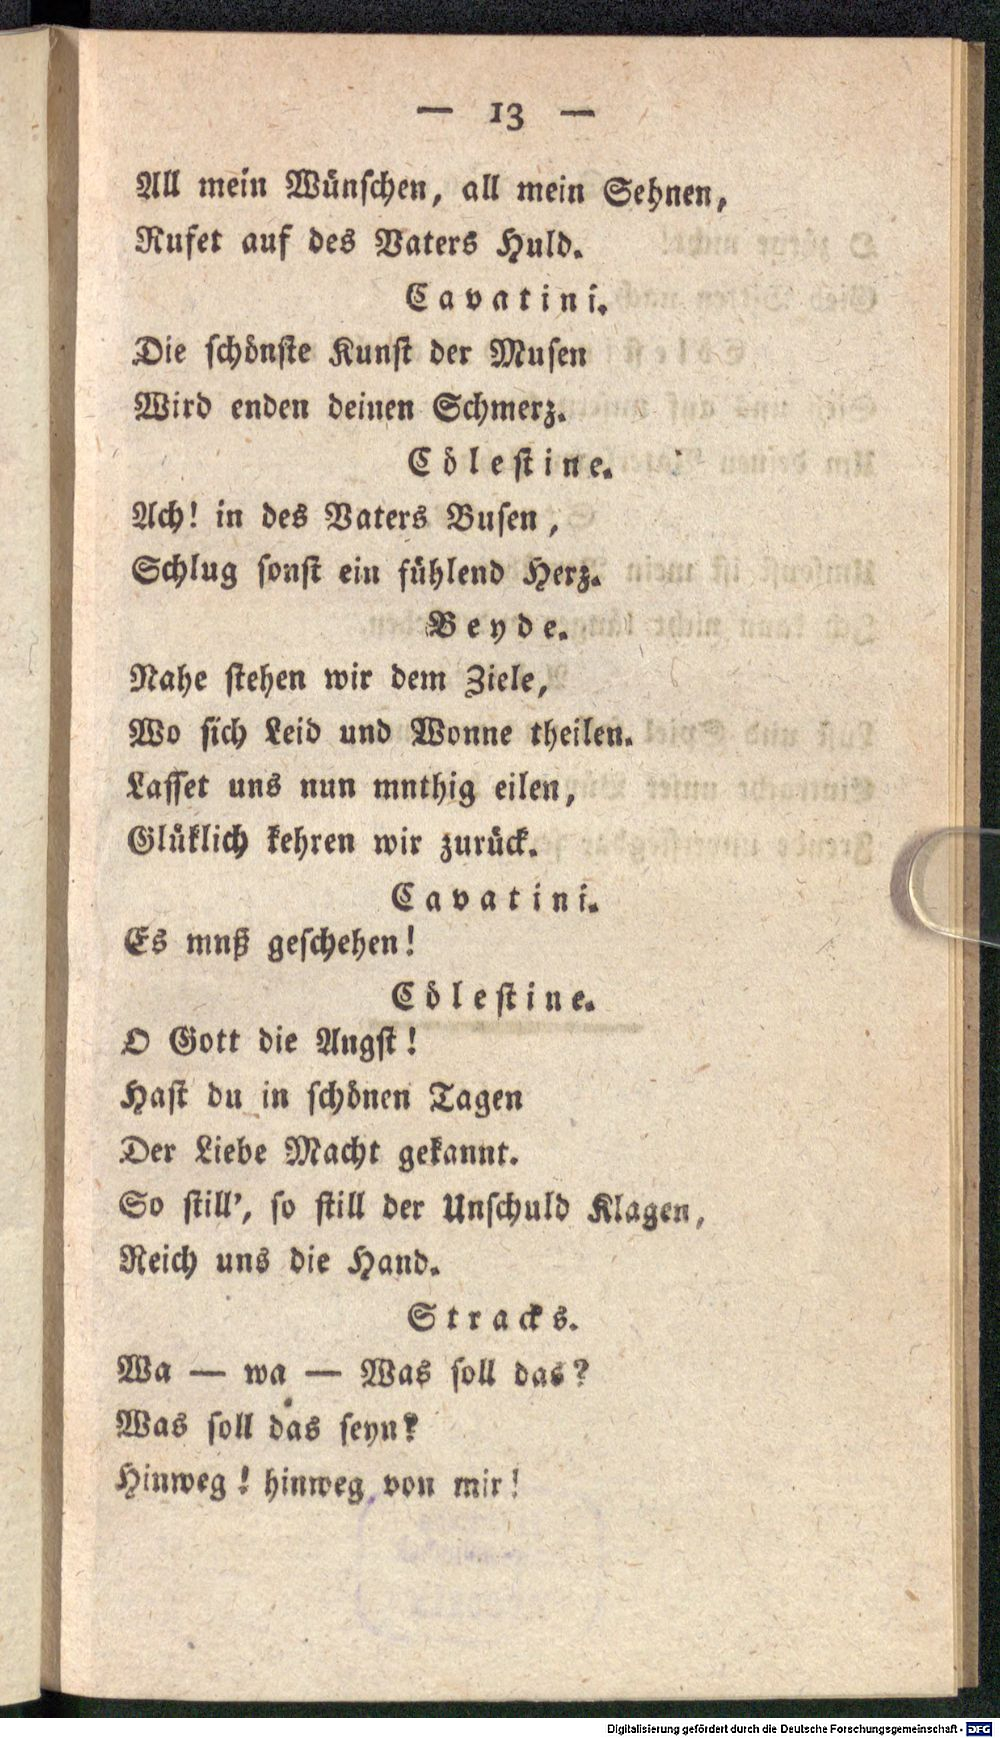 — 13 —
All mein Wünschen, all mein Sehnen,
Rufet auf des Vaters Huld.
Cavatini.
Die schönste Kunst der Musen
Wird enden deinen Schmerz.
Cölestine.
Ach! in des Vaters Busen,
Schlug sonst ein fühlend Herz.
Beyde.
Nahe stehen wir dem Ziele,
Wo sich Leid und Wonne theilen.
Lasset uns nun mnthig eilen,
Glüklich kehren wir zurück.
Cavatini.
Es mnß geschehen!
Cölestine.
O Gott die Angst!
Hast du in schönen Tagen
Der Liebe Macht gekannt.
So still', so still der Unschuld Klagen,
Reich uns die Hand.
Stracks.
Wa — wa — Was soll das?
Was soll das seyn?
Hinweg! hinweg von mir!
Digitalisierung gefördert durch die Deutsche Forschungsgemeinschaft - DFG